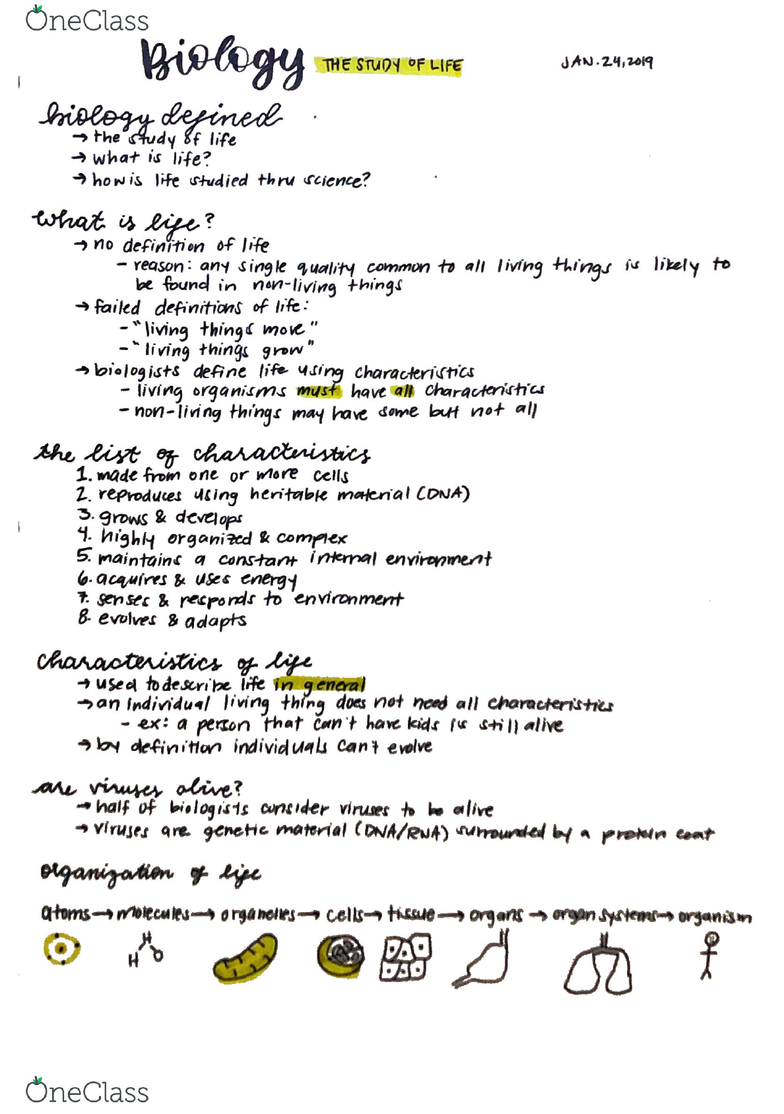 OneClass
Biology THE STUDY OF LIFE JAN. 24, 2019
biology defined
→ the study of life
→ what is life?
→ how is life studied thru science?
what is life?
→ no definition of life
- reason: any single quality common to all living things is likely to
be found in non-living things
→ failed definitions of life:
- "living things move"
- "living things grow"
→ biologists define life using characteristics
- living organisms must have all characteristics
- non-living things may have some but not all
the list of characteristics
1. made from one or more cells
2. reproduces using heritable material (DNA)
3. grows & develops
4. highly organized & complex
5. maintains a constant internal environment
6. acquires & uses energy
7. senses & responds to environment
8. evolves & adapts
characteristics of life
→ used to describe life in general
→ an individual living thing does not need all characteristics
- ex: a person that can't have kids is still alive
→ by definition individuals can't evolve
are viruses alive?
→ half of biologists consider viruses to be alive
→ viruses are genetic material (DNA/RNA) surrounded by a protein coat
organization of life
atoms → molecules → organelles → cells → tissue → organs → organ systems → organism
H H O
OneClass